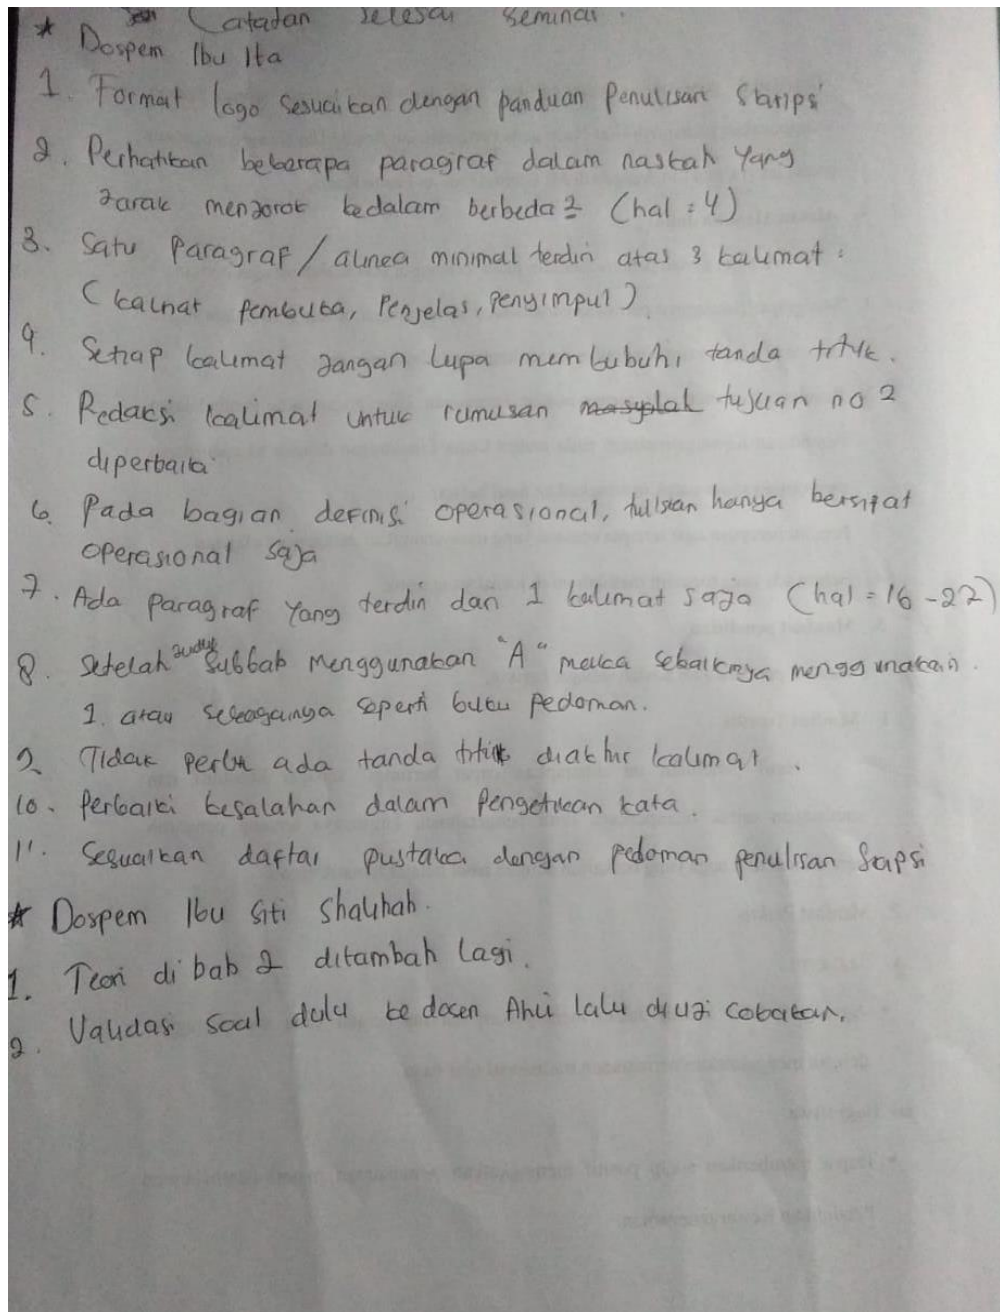 Catatan selesai seminar.
* Dospem Ibu Ita
1. Format logo sesuaikan dengan panduan Penulisan Skripsi
2. Perhatikan beberapa paragraf dalam naskah yang
Jarak menjorok kedalam berbeda2 (hal = 4)
3. Satu Paragraf / alinea minimal terdiri atas 3 kalimat.
(kalmat pembuka, Penjelas, penyimpul)
4. Setiap kalimat Jangan lupa membubuhi tanda titik.
5. Redaksi kalimat untuk rumusan masyalah tujuan no 2
diperbaiki
6. Pada bagian definisi operasional, tulisan hanya bersifat
operasional saja
7. Ada paragraf yang terdiri dari 1 kalimat saja (hal = 16 - 22)
8. Setelah judul subbab menggunakan "A" maka sebaiknya menggunakan.
1. atau sebagainya seperti buku pedoman.
9. Tidak perlu ada tanda titik diakhir kalimat.
10. Perbaiki kesalahan dalam Pengetikan kata.
11. Sesuaikan daftar pustaka dengan pedoman penulisan Skripsi
* Dospem Ibu Siti Shalihah.
1. Teori di bab 2 ditambah lagi.
2. Validasi soal dulu ke dosen Ahli lalu di uji cobakan.